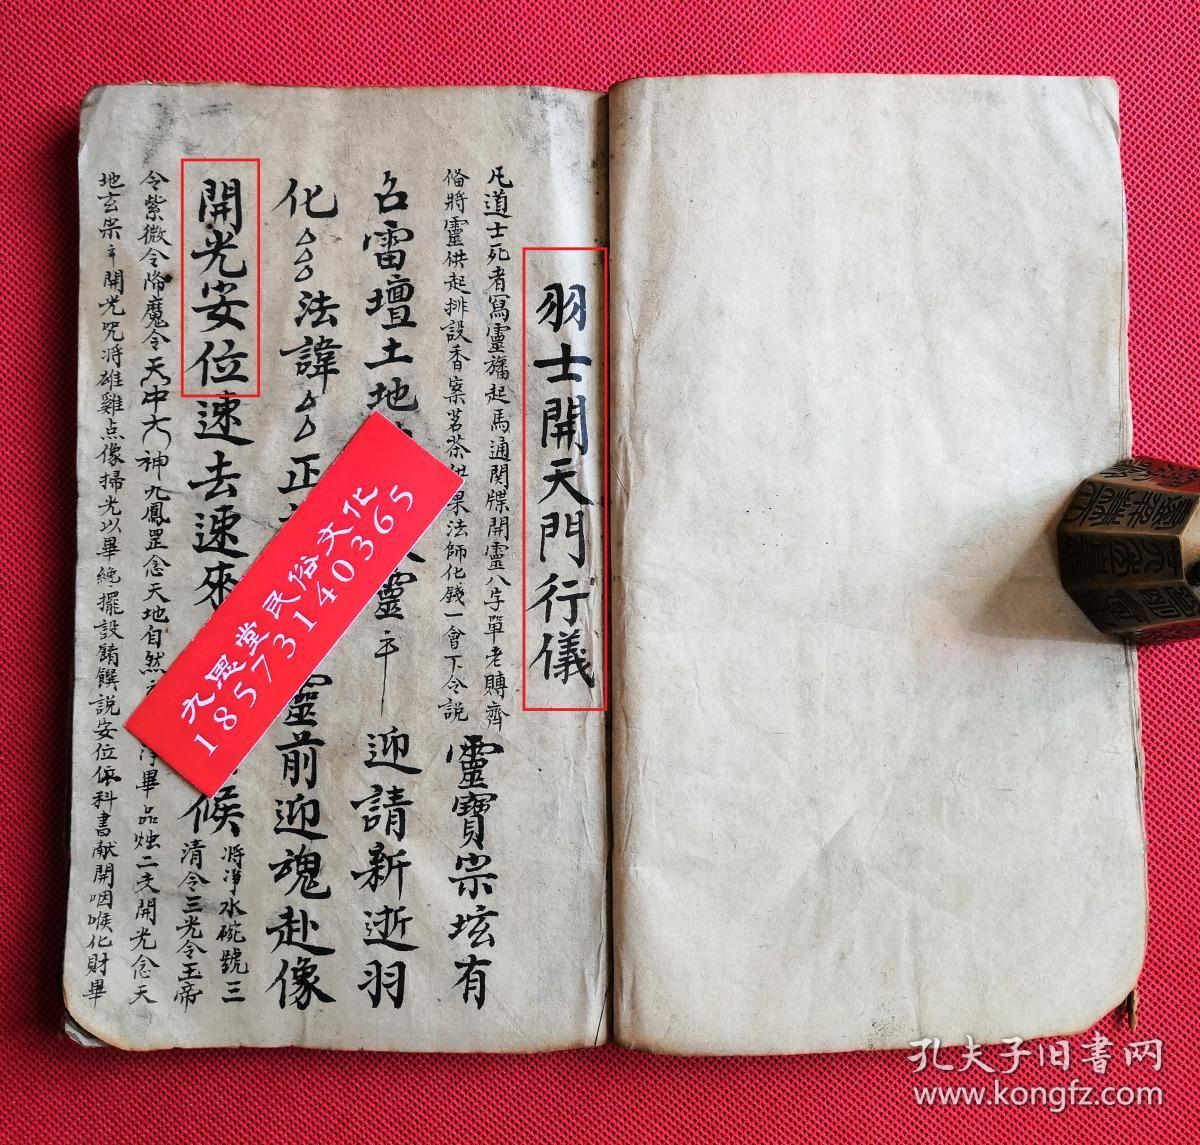 羽士開天門行儀
凡道士死者寫靈旛起馬通関牒開靈八字單老賻齊
俻將靈供起排設香案茗茶供果法師化錢一會下令説
靈寶宗坛有
召雷壇土地
靈
迎請新逝羽
化
法諱
正
靈前迎魂赴像
開光安位速去速來
候
将净水碗號三
清令三光令玉帝
令紫微令降魔令天中大神九鳳罡念天地自然
淨畢品烛二支開光念天
地玄宗
開光咒将雄雞点像掃光以畢絶擺設餚饌説安位依科書献開咽喉化財畢
九思堂民俗文化
18573140365
孔夫子旧書网
www.kongfz.com